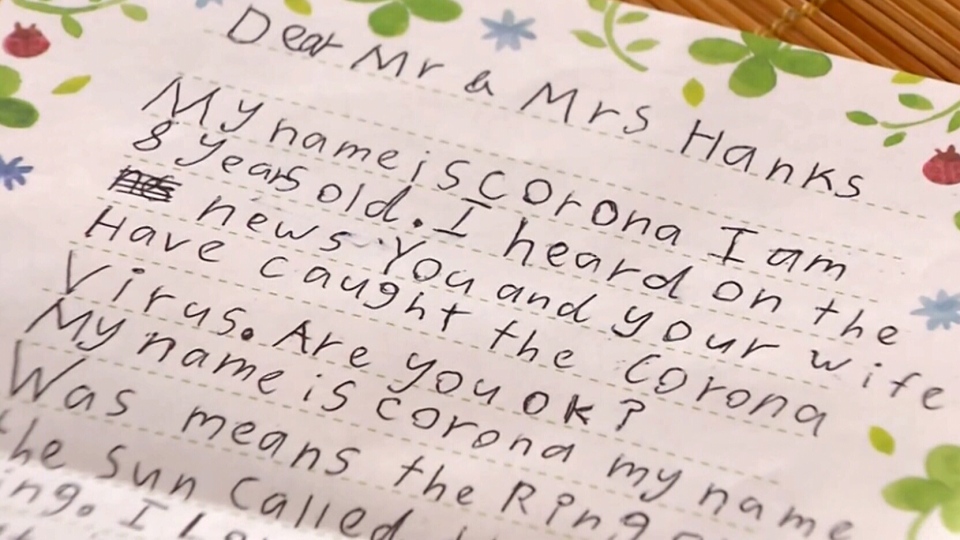 Dear Mr & Mrs Hanks
My name is corona I am
8 years old. I heard on the
news. You and your wife
Have caught the Corona
Virus. Are you ok?
My name is corona my name
Was means the Ring
the sun called
ing. I